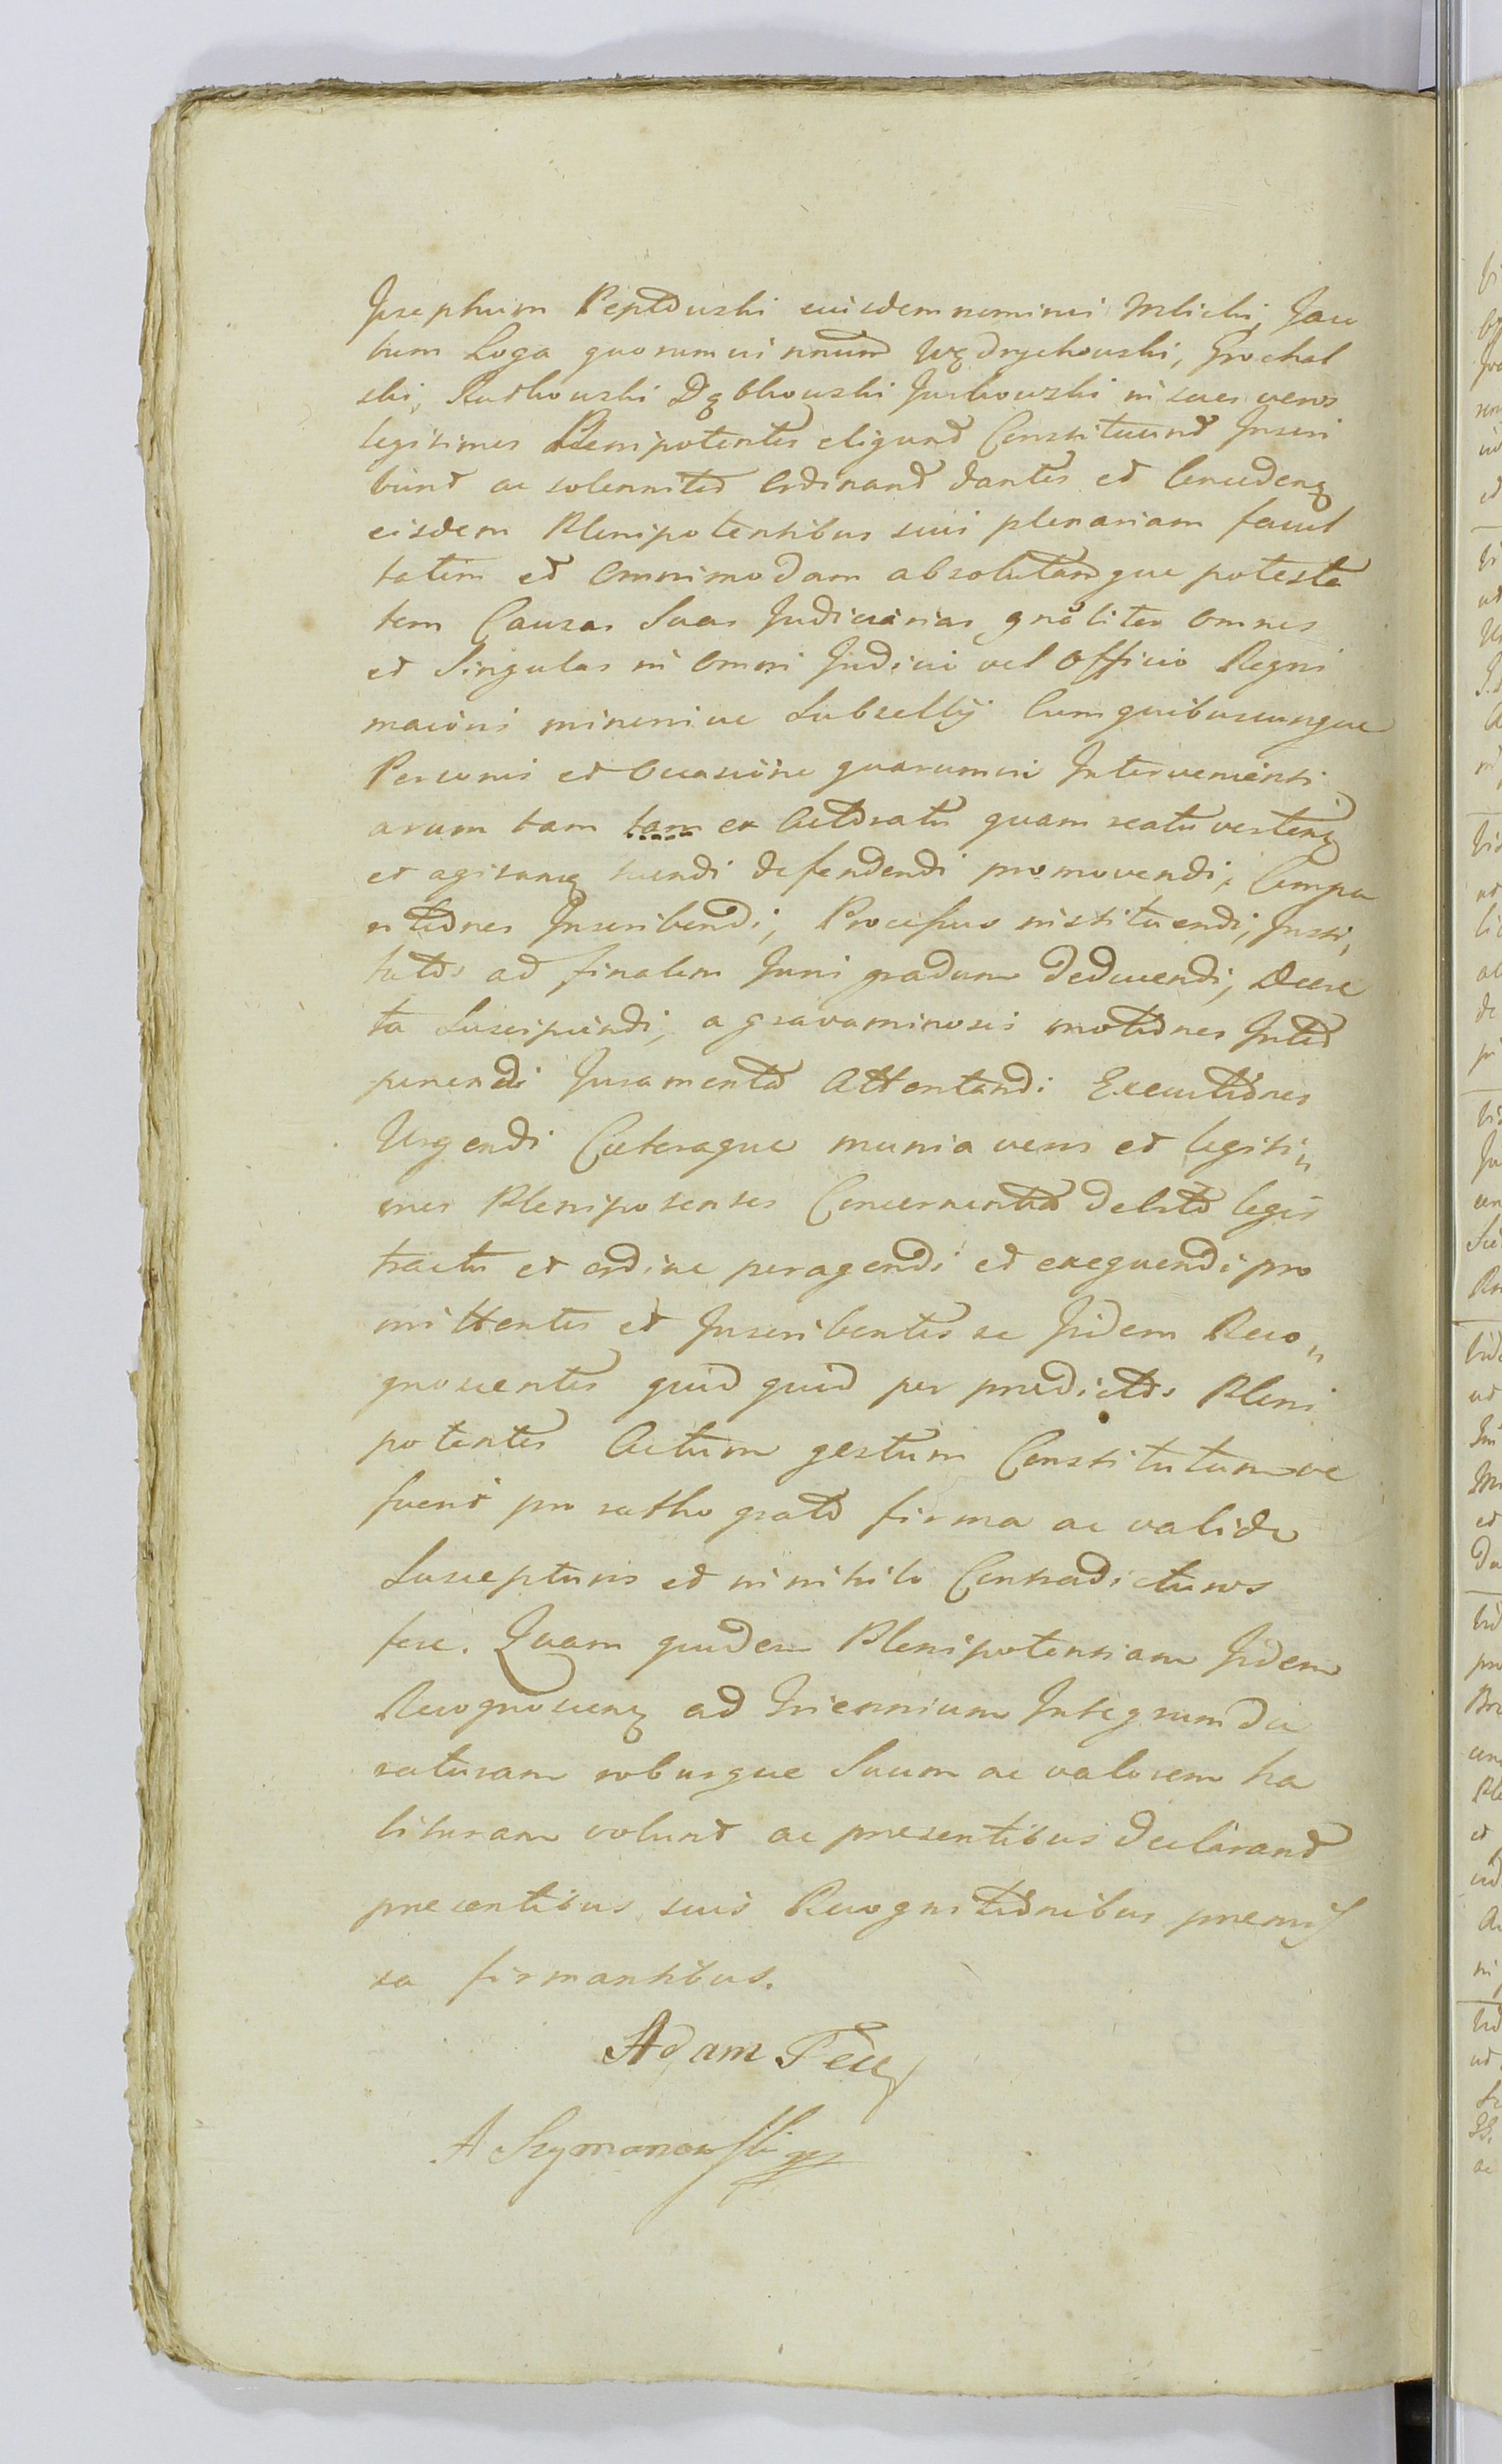 Josephum Peptowski eiusdem nominis Mlicki, Jaco
bum Loga quorumvi nnum Wędrychowski, Grochal
ski, Rutkowski Dębkowski Jurkowski in suos veros
legitimos Plenipotentes eligunt Constituunt Inscri
bunt ac solenniter Ordinant dantes et Concedenę
eisdem Plenipotentibus suis plenariam facul
tatem et Omnimodam absolutamque potesta
tem Causas Suas Judiciarias gnẽliter Omnes
et Singulas in Omni Judicio vel Officio Regni
maioris minorisve Subsellij Cum quibuscunque
Personis et Occasione quarumvi Intervenienti
arum tam tam ex Actoratu quam reatu vertenę
et agitanę tuendi defendendi promovendi, Compa
ritiones Inscribendi, Processus instituendi, Insti,
tutos ad finalem Juris gradum deducendi, Decre
ta Suscipiendi, a gravaminosis motiones Inter
ponendi Juramenta Attentandi Executiones
Urgendi Caeteraque munia veros et legiti„
mos Plenipotentes Concernentia debito legis
tractu et ordine peragendi et exequendi pro
mittentes et Inscribentes se Iidem Reco„
gnoscentes quid quid per praedictos Pleni
potentes Actum gestum Constitutumve
fuerit pro ratho grato firmo ac valido
Suscepturos et in nihilo Contradicturos
fore. Quam quidem Plenipotentiam Iidem
Recognoscenę ad Triennium Integrum du
raturam roburque Suum ac valorem ha
bituram volunt ac presentibus declarant
presentibus suis Recognitionibus premis
sa firmantibus.
Adam
A Szymanowski